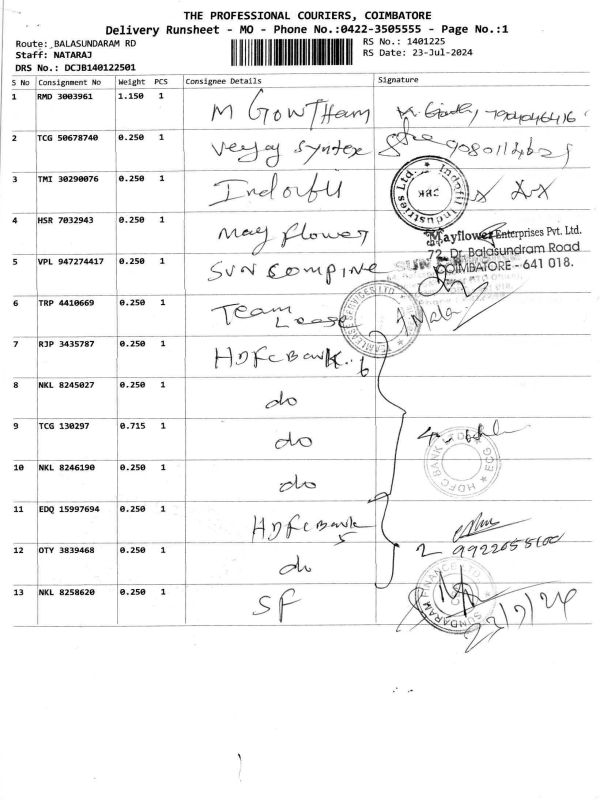 THE PROFESSIONAL COURIERS, COIMBATORE
Delivery Runsheet - MO - Phone No.:0422-3505555 - Page No.:1
Route: BALASUNDARAM RD
Staff: NATARAJ
DRS No.: DCJB140122501
RS No.: 1401225
RS Date: 23-Jul-2024
S No Consignment No Weight PCS Consignee Details Signature
1 RMD 3003961 1.150 1 M Gowtham
2 TCG 50678740 0.250 1 Veejay Syntex
3 TMI 30290076 0.250 1 Indofil
Indofil Industries Ltd.
4 HSR 7032943 0.250 1 May flower
Mayflower Enterprises Pvt. Ltd.
72, Dr. Balasundram Road
COIMBATORE - 641 018.
5 VPL 947274417 0.250 1 SUN
6 TRP 4410669 0.250 1 Team Lease
Mala
7 RJP 3435787 0.250 1 HDFC Bank 6
8 NKL 8245027 0.250 1 do
9 TCG 130297 0.715 1 do
HDFC BANK LTD
10 NKL 8246190 0.250 1 do
11 EDQ 15997694 0.250 1 HDFC Bank
12 OTY 3839468 0.250 1 do 2
13 NKL 8258620 0.250 1 SF
SUNDARAM FINANCE LTD.
23/7/24